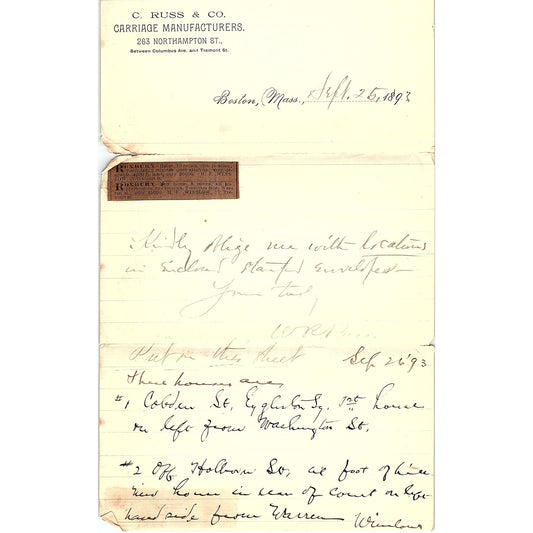 C. RUSS & CO.
CARRIAGE MANUFACTURERS,
263 NORTHAMPTON ST.,
Between Columbus Ave. and Tremont St.
Boston, Mass., Sept. 25, 1893
ROXBURY
ROXBURY
Kindly oblige me with locations
in Enclosed Stamped Envelope
Yours truly,
Put on this sheet Sep 26 '93
These houses are
#1 Cobden St, Eggleston Sq. 1st house
on left from Washington St,
#2 Off Holborn St, at foot of
new house in rear of court on left
hand side from Warren Winslow